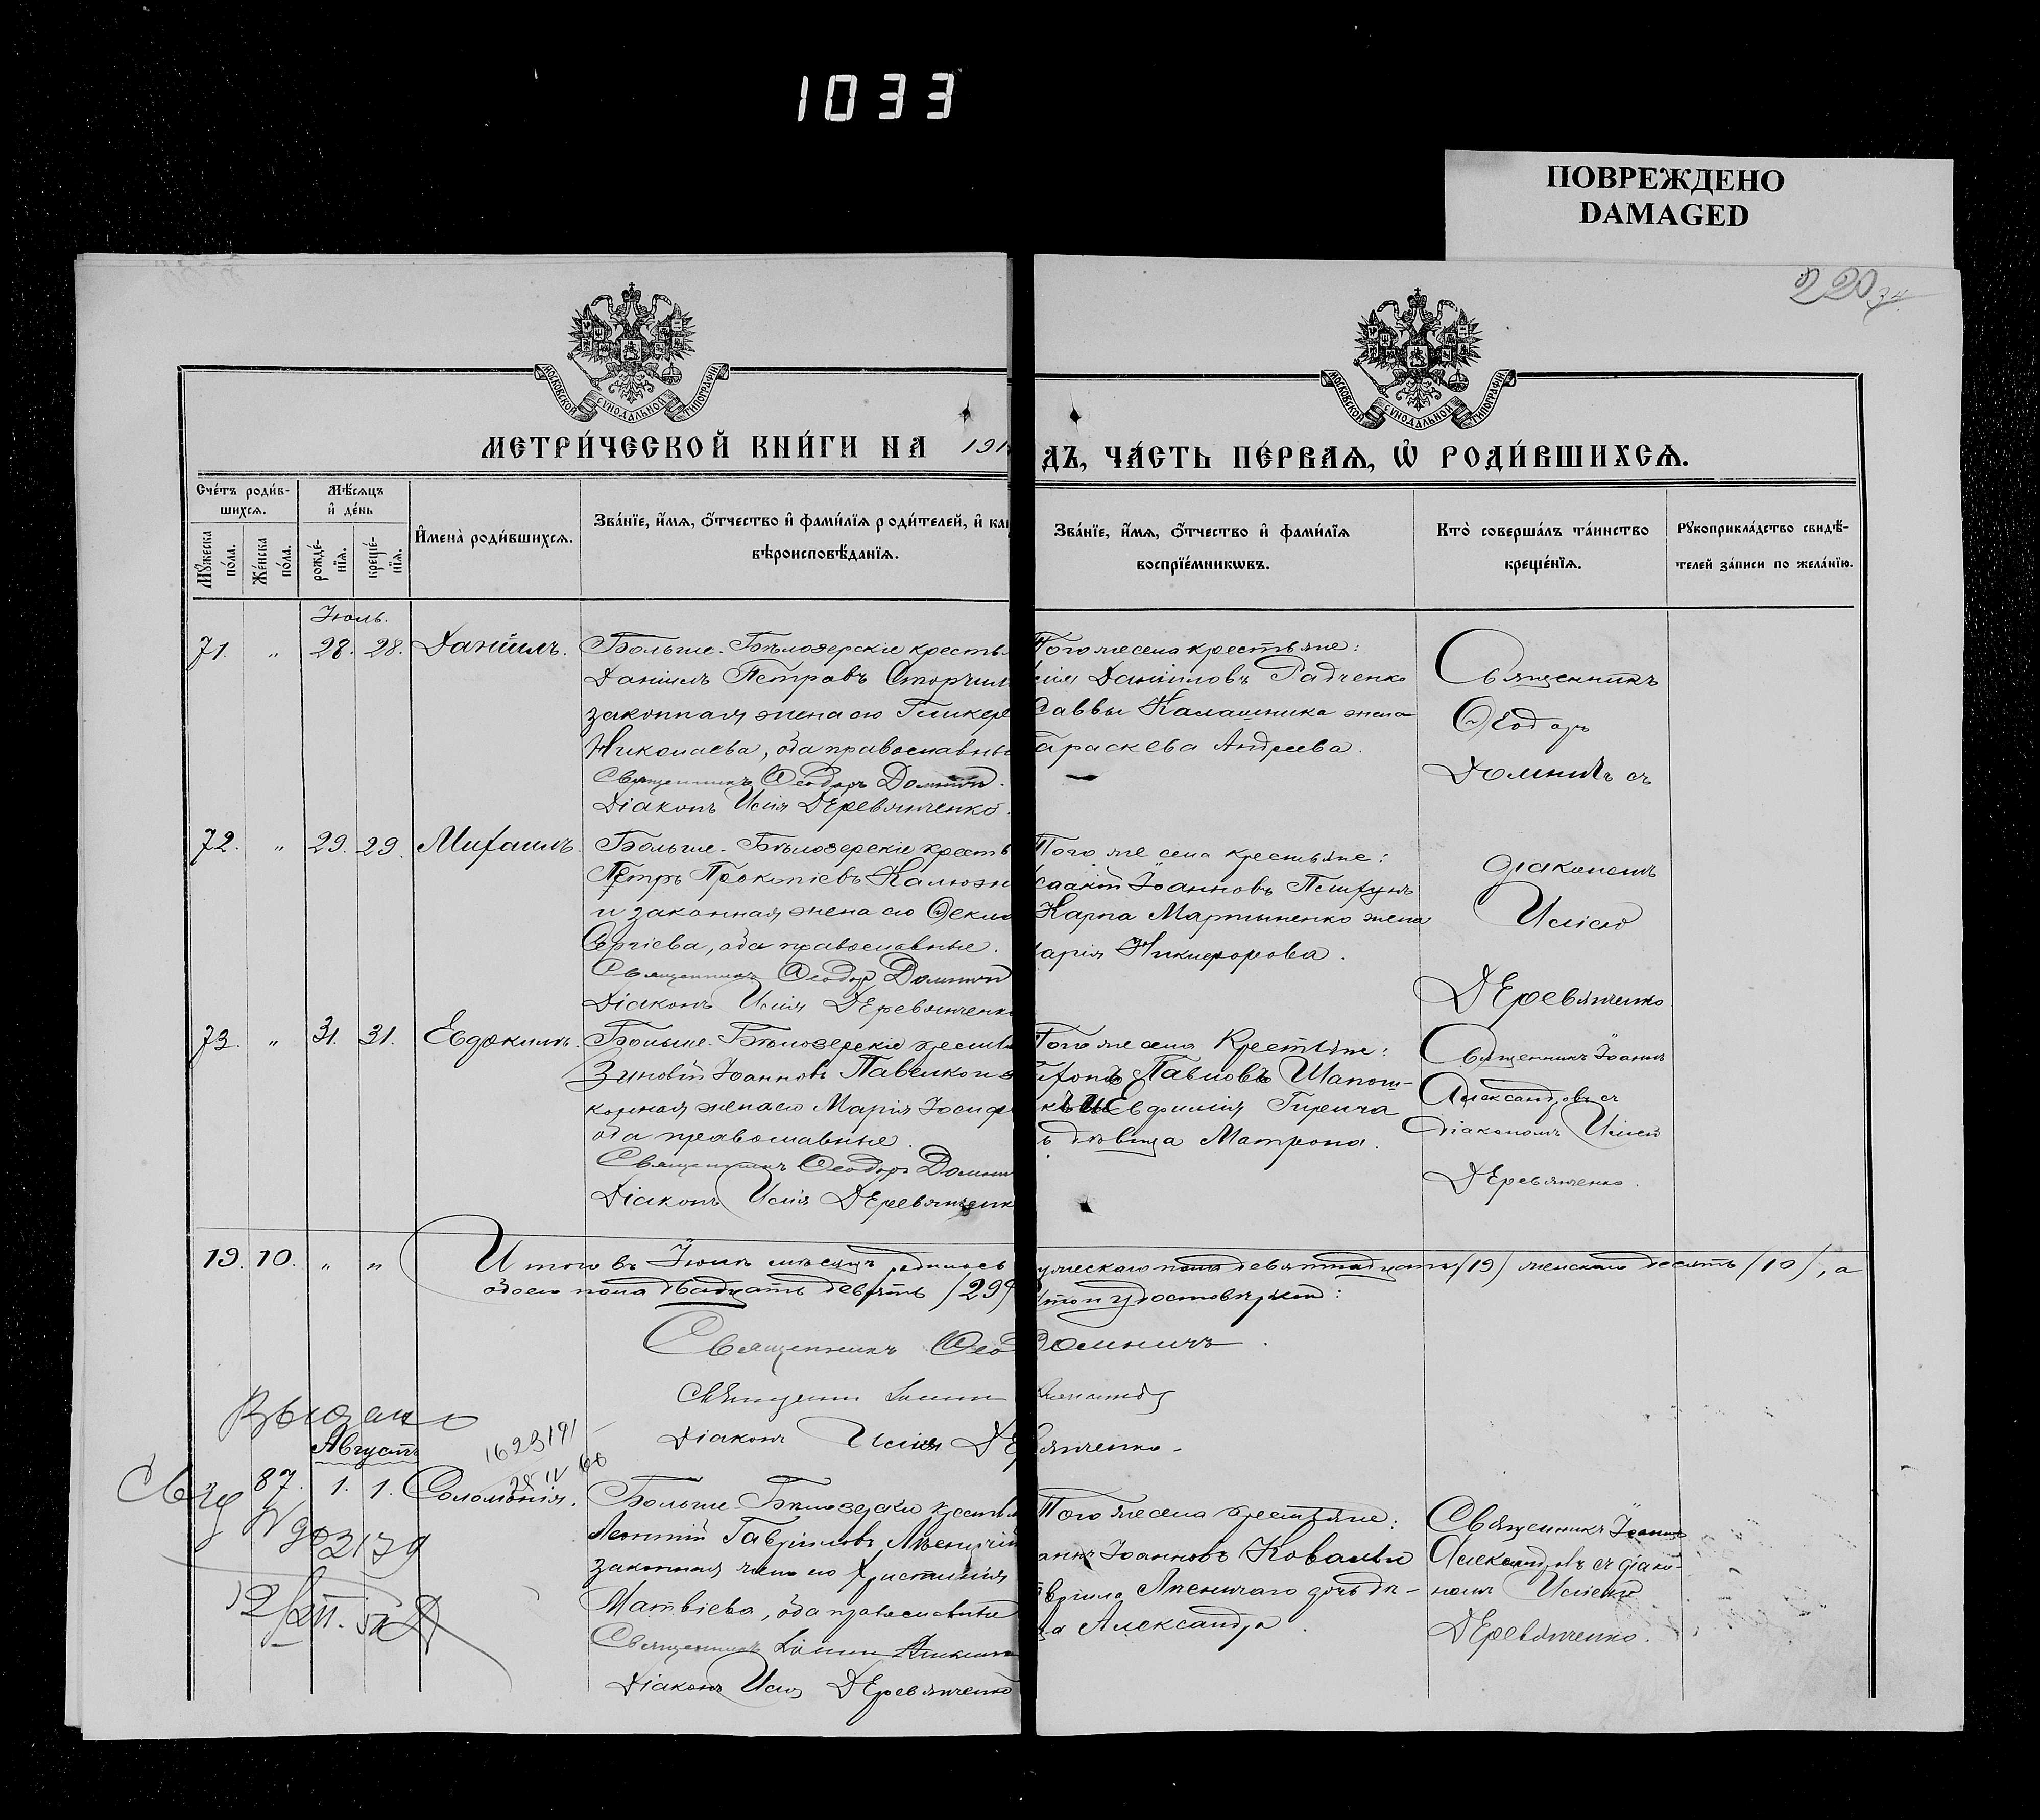 1033
ПОВРЕЖДЕНО
DAMAGED
220
МОСКОВСКОЙ СѴНОДАЛЬНОЙ ТИПОГРАФІИ
МОСКОВСКОЙ СѴНОДАЛЬНОЙ ТИПОГРАФІИ
МЕТРИ́ЧЕСКОЙ КНИ́ГИ НА 191
ДЪ, ЧА́СТЬ ПЕ́РВАѦ, Ѡ҆ РОДИ́ВШИХСѦ.
Сче́тъ роди́в-
шихсѧ.
Мꙋ́жеска по́ла.
Же́нска по́ла.
Мѣ́сѧцъ
и҆ де́нь
рожде́-нїѧ.
креще́-нїѧ.
И҆мена̀ роди́вшихсѧ.
Зва́нїе, и҆́мѧ, ѻ҆́тчество и҆ фами́лїѧ роди́телей, и҆ ка
вѣроисповѣ́данїѧ.
Зва́нїе, и҆́мѧ, ѻ҆́тчество и҆ фами́лїѧ
воспрїе́мникѡвъ.
Кто̀ соверша́лъ та́инство
креще́нїѧ.
Рꙋкоприкла́дство свидѣ́-
телей за́писи по жела́нїю.
Іюль.
71. " 28. 28. Даніилъ.
Больше-Бѣлозерскіе кресть
Даніилъ Петровъ Сторчил
законная жена его Гликер
Николаева, оба православны
Священникъ Ѳеодоръ Домнич
Діаконъ Илія Деревянченко.
Того же села крестьяне:
лія Даніиловъ Радченко
Саввы Калашника жена
Параскева Андреева.
Священникъ
Ѳеодоръ
Домничъ съ
72. " 29. 29. Михаилъ.
Больше-Бѣлозерскіе кресть
Петръ Прокопіевъ Калюжн
и законная жена его Ѳекла
Сергіева, оба православные.
Священникъ Ѳеодоръ Домнич
Діаконъ Илія Деревянченко
Того же села крестьяне:
саакій Іоанновъ Пшухунъ
Карпа Мартыненко жена
арія Никифорова.
діакономъ
Иліею
Деревянченко
73. " 31. 31. Евдокимъ.
Больше-Бѣлозерскіе кресть
Зиновій Іоанновъ Павелко и з
конная жена его Марія Іосиф
оба православные.
Священникъ Ѳеодоръ Домни
Діаконъ Илія Деревянченк
Того же села Крестьяне:
ифонъ Павловъ Шапош-
къ и Евфимія Гиренча
ь дѣвица Матрона.
Священникъ Іоаннъ
Александровъ съ
діакономъ Иліей
Деревянченко.
19. 10. " "
Итого въ Іюлѣ мѣсяцѣ родилось
ужескаго пола девятнадцать /19/ женскаго десять /10/, а
обоего пола двадцать девять /29/
что и удостовѣряютъ:
Священникъ Ѳео
Домничъ.
Священ Іоанн
Александр
Діаконъ Илія Де
вянченко.
Выдано
Августъ
87. 1. 1. Соломонія.
Больше-Бѣлозерскіе крестья
Леонтій Гавріиловъ Лѣсничій
законная жена его Христинія
Матвіева, оба православные
Священникъ Іоаннъ Алексан
Діаконъ Илія Деревянченко
Того же села крестьяне:
аннъ Іоанновъ Коваль и
вріила Лѣсничаго дочь дѣ-
ца Александра.
Священникъ Іоаннъ
Александровъ съ діако-
номъ Иліею
Деревянченко.